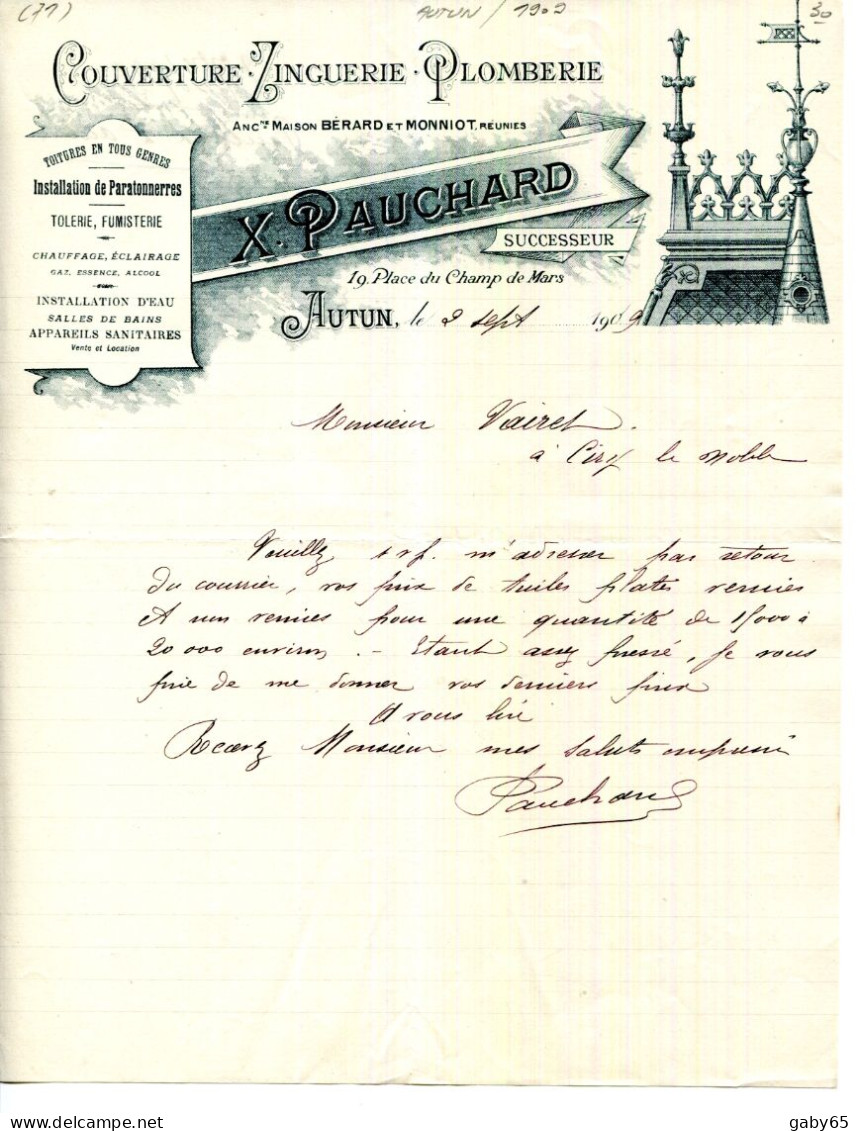 (71)
AUTUN / 1909
30
COUVERTURE · ZINGUERIE · PLOMBERIE
ANCNE MAISON BÉRARD ET MONNIOT, RÉUNIES
X. PAUCHARD
SUCCESSEUR
19, Place du Champ de Mars
TOITURES EN TOUS GENRES
Installation de Paratonnerres
TOLERIE, FUMISTERIE
CHAUFFAGE, ÉCLAIRAGE
GAZ, ESSENCE, ALCOOL
INSTALLATION D'EAU
SALLES DE BAINS
APPAREILS SANITAIRES
Vente et Location
AUTUN, le 2 sept 1909
Monsieur Vairet.
à Ciry le Noble
Veuillez s v p. m'adresser par retour
du courrier, vos prix de tuiles plates vernies
et non vernies pour une quantité de 15000 à
20 000 environ . — Etant assez pressé, je vous
prie de me donner vos derniers prix
A vous lire
Recevez Monsieur mes saluts empressés
Pauchard
gaby65